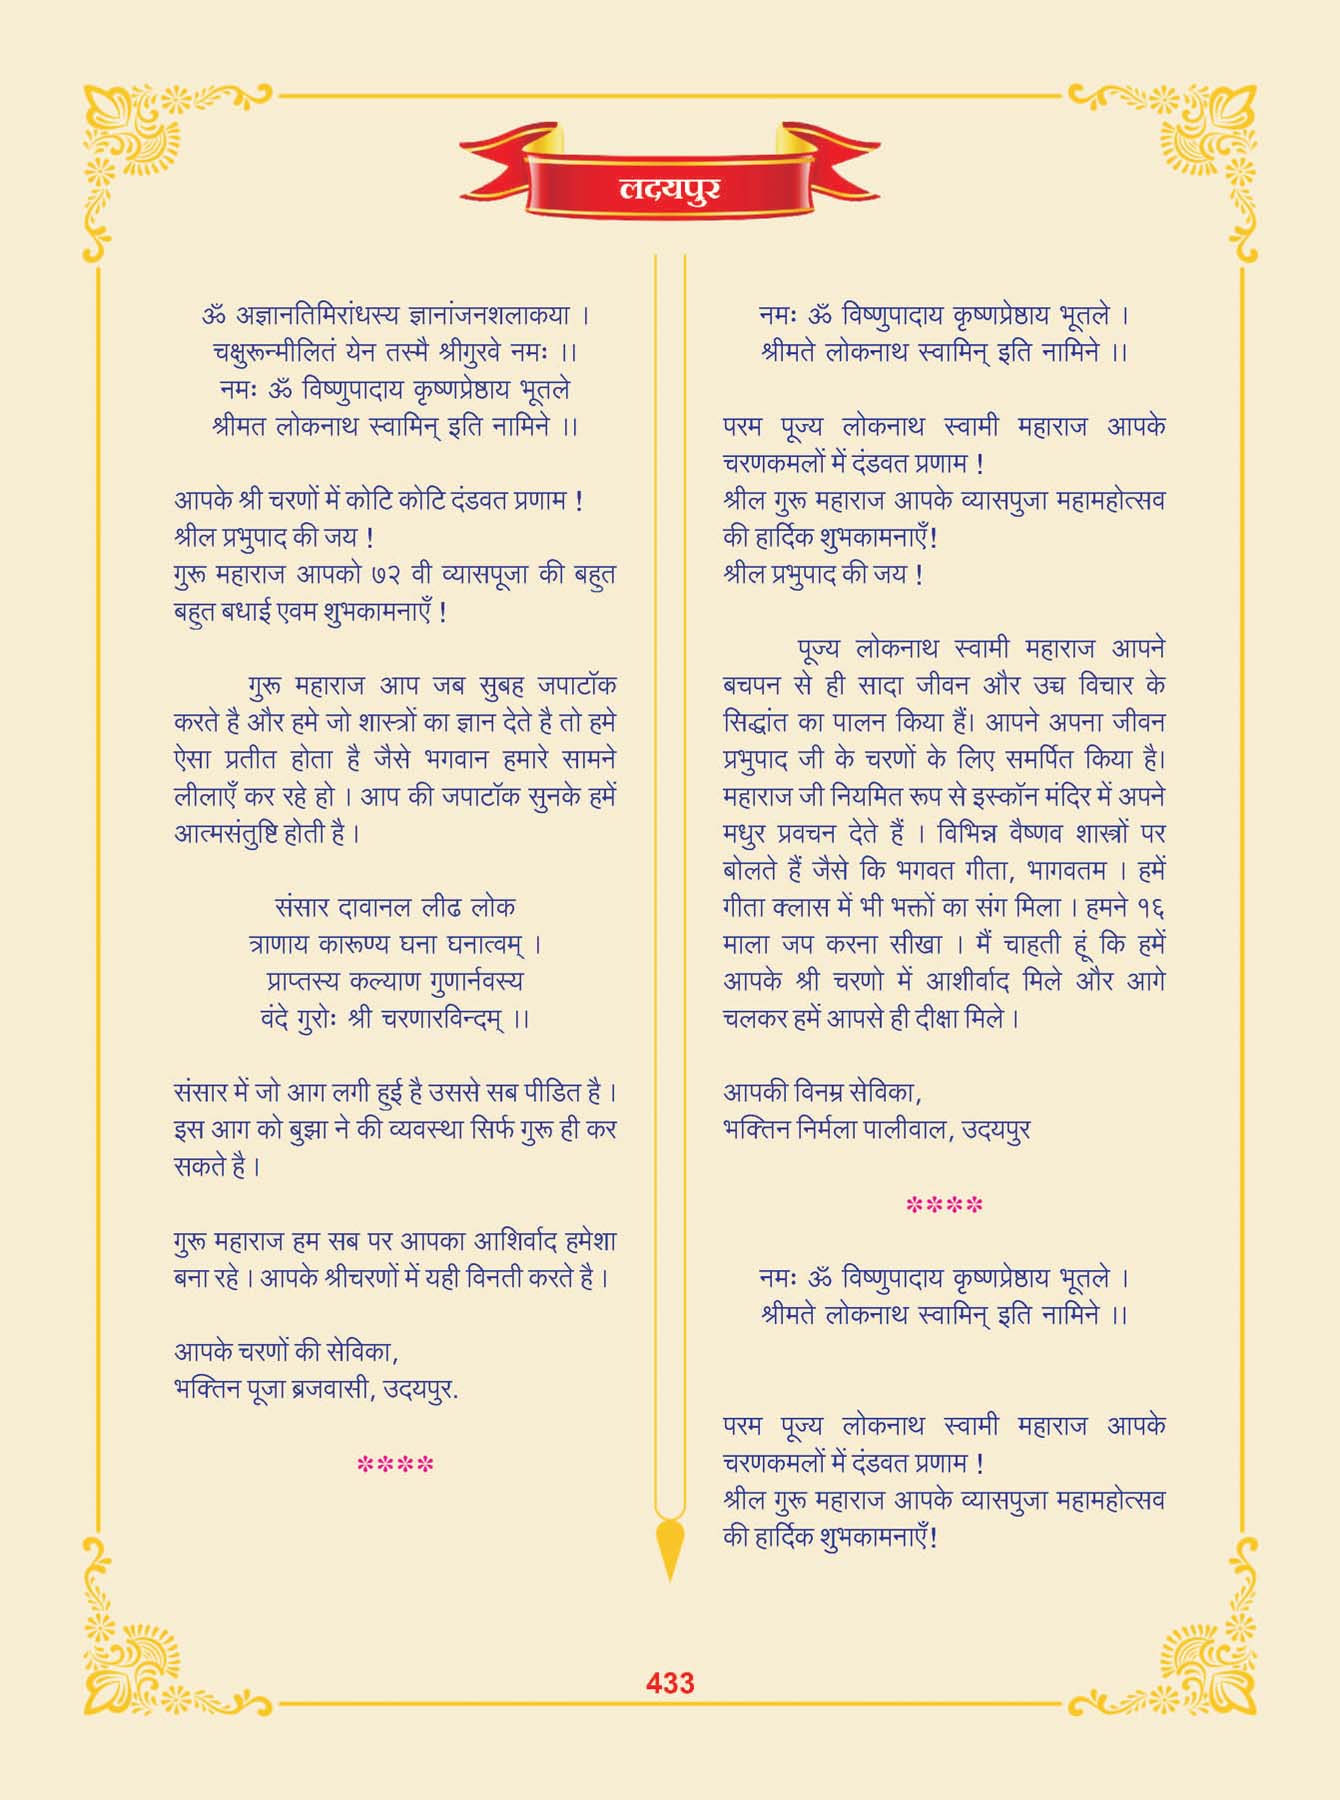 लदयपुर
ॐ अज्ञानतिमिरांधस्य ज्ञानांजनशलाकया ।
चक्षुरून्मीलितं येन तस्मै श्रीगुरवे नमः ।।
नमः ॐ विष्णुपादाय कृष्णप्रेष्ठाय भूतले
श्रीमत लोकनाथ स्वामिन् इति नामिने ।।
आपके श्री चरणों में कोटि कोटि दंडवत प्रणाम !
श्रील प्रभुपाद की जय !
गुरू महाराज आपको ७२ वी व्यासपूजा की बहुत
बहुत बधाई एवम शुभकामनाएँ !
गुरू महाराज आप जब सुबह जपाटॉक
करते है और हमे जो शास्त्रों का ज्ञान देते है तो हमे
ऐसा प्रतीत होता है जैसे भगवान हमारे सामने
लीलाएँ कर रहे हो । आप की जपाटॉक सुनके हमें
आत्मसंतुष्टि होती है ।
संसार दावानल लीढ लोक
त्राणाय कारूण्य घना घनात्वम् ।
प्राप्तस्य कल्याण गुणार्नवस्य
वंदे गुरोः श्री चरणारविन्दम् ।।
संसार में जो आग लगी हुई है उससे सब पीडित है ।
इस आग को बुझा ने की व्यवस्था सिर्फ गुरू ही कर
सकते है ।
गुरू महाराज हम सब पर आपका आशिर्वाद हमेशा
बना रहे । आपके श्रीचरणों में यही विनती करते है ।
आपके चरणों की सेविका,
भक्तिन पूजा ब्रजवासी, उदयपुर.
****
नमः ॐ विष्णुपादाय कृष्णप्रेष्ठाय भूतले ।
श्रीमते लोकनाथ स्वामिन् इति नामिने ।।
परम पूज्य लोकनाथ स्वामी महाराज आपके
चरणकमलों में दंडवत प्रणाम !
श्रील गुरू महाराज आपके व्यासपुजा महामहोत्सव
की हार्दिक शुभकामनाएँ!
श्रील प्रभुपाद की जय !
पूज्य लोकनाथ स्वामी महाराज आपने
बचपन से ही सादा जीवन और उच्च विचार के
सिद्धांत का पालन किया हैं। आपने अपना जीवन
प्रभुपाद जी के चरणों के लिए समर्पित किया है।
महाराज जी नियमित रूप से इस्कॉन मंदिर में अपने
मधुर प्रवचन देते हैं । विभिन्न वैष्णव शास्त्रों पर
बोलते हैं जैसे कि भगवत गीता, भागवतम । हमें
गीता क्लास में भी भक्तों का संग मिला । हमने १६
माला जप करना सीखा । मैं चाहती हूं कि हमें
आपके श्री चरणो में आशीर्वाद मिले और आगे
चलकर हमें आपसे ही दीक्षा मिले ।
आपकी विनम्र सेविका,
भक्तिन निर्मला पालीवाल, उदयपुर
****
नमः ॐ विष्णुपादाय कृष्णप्रेष्ठाय भूतले ।
श्रीमते लोकनाथ स्वामिन् इति नामिने ।।
परम पूज्य लोकनाथ स्वामी महाराज आपके
चरणकमलों में दंडवत प्रणाम !
श्रील गुरू महाराज आपके व्यासपुजा महामहोत्सव
की हार्दिक शुभकामनाएँ!
433